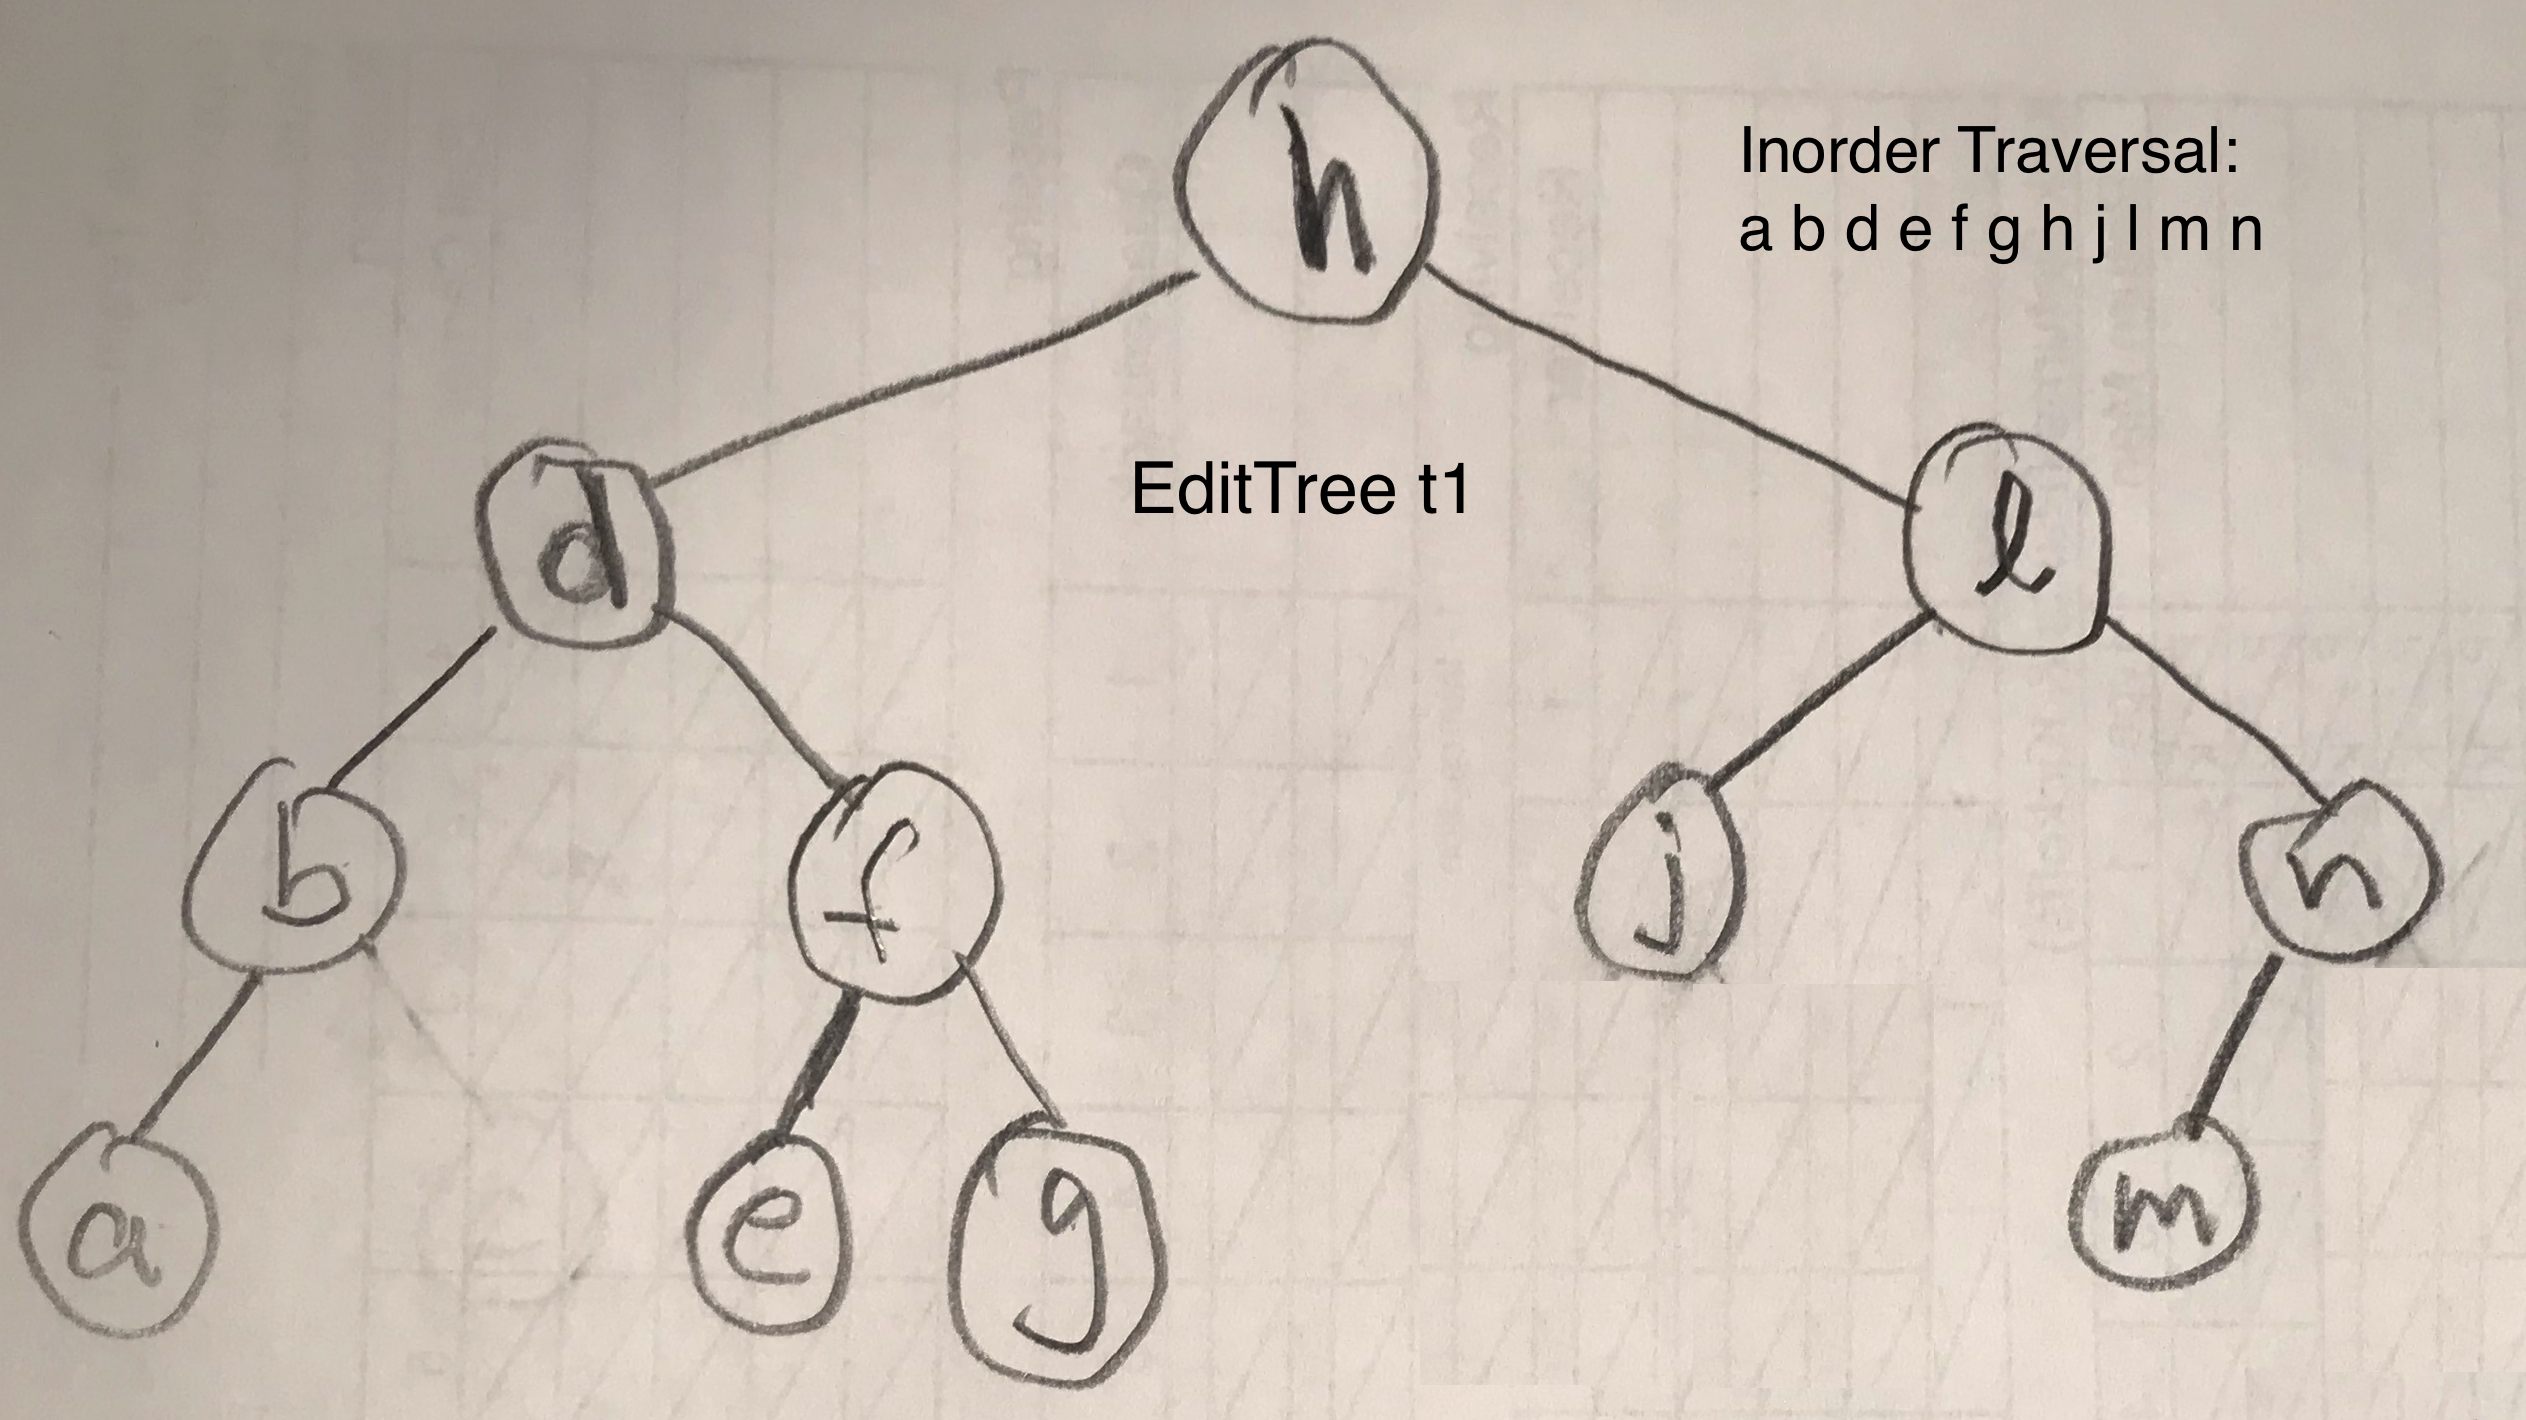 h
Inorder Traversal:
a b d e f g h j l m n
EditTree t1
d
l
b
f
j
n
a
e
g
m